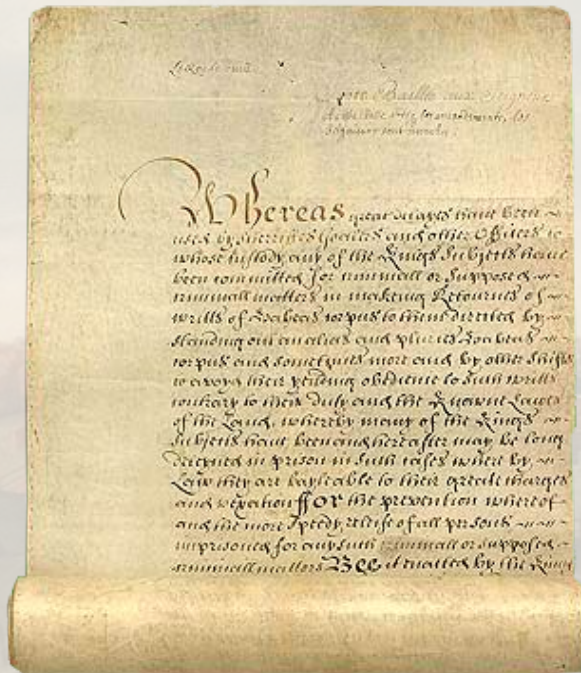 Le Roy le veult
Soit Baille aux Seigneurs
A cette Bille avec les amendments les
Seigneurs sont
Whereas great delayes have been
used by Sherriffes Goalers and other Officers to
whose custody any of the Kings Subjects have
been committed for criminall or Supposed
criminall matters in makeing Retournes of
writts of Habeas corpus to them directed by
standing out an alias and pluries Habeas
corpus and sometymes more and by other shifts
to avoyd their yeilding obedience to such writts
contrary to their duty and the Knowne Lawes
of the Land whereby many of the Kings
Subjects have been and hereafter may be long
deteyned in prison in such cases where by
Law they are bayleable to their greate charges
and vexation ffor the prevention whereof
and the more speedy releife of all persons
imprisoned for any such criminall or supposed
criminall matters Bee it enacted by the Kings